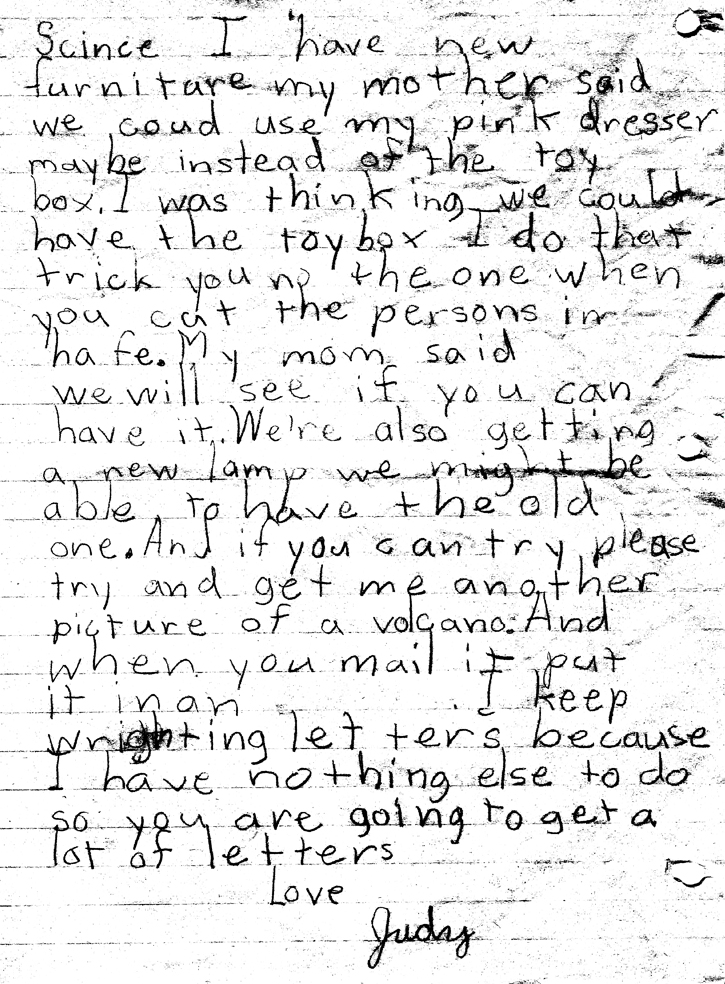 Scince I have new
furniture my mother said
we coud use my pink dresser
maybe instead of the toy
box. I was thinking we could
have the toybox I do that
trick you no the one when
you cut the persons in
hafe. My mom said
we will see if you can
have it. We're also getting
a new lamp we might be
able to have the old
one. And if you can try please
try and get me another
picture of a volcano. And
when you mail it put
it in an . I keep
wrighting letters because
I have nothing else to do
so you are going to get a
lot of letters
Love
Judy